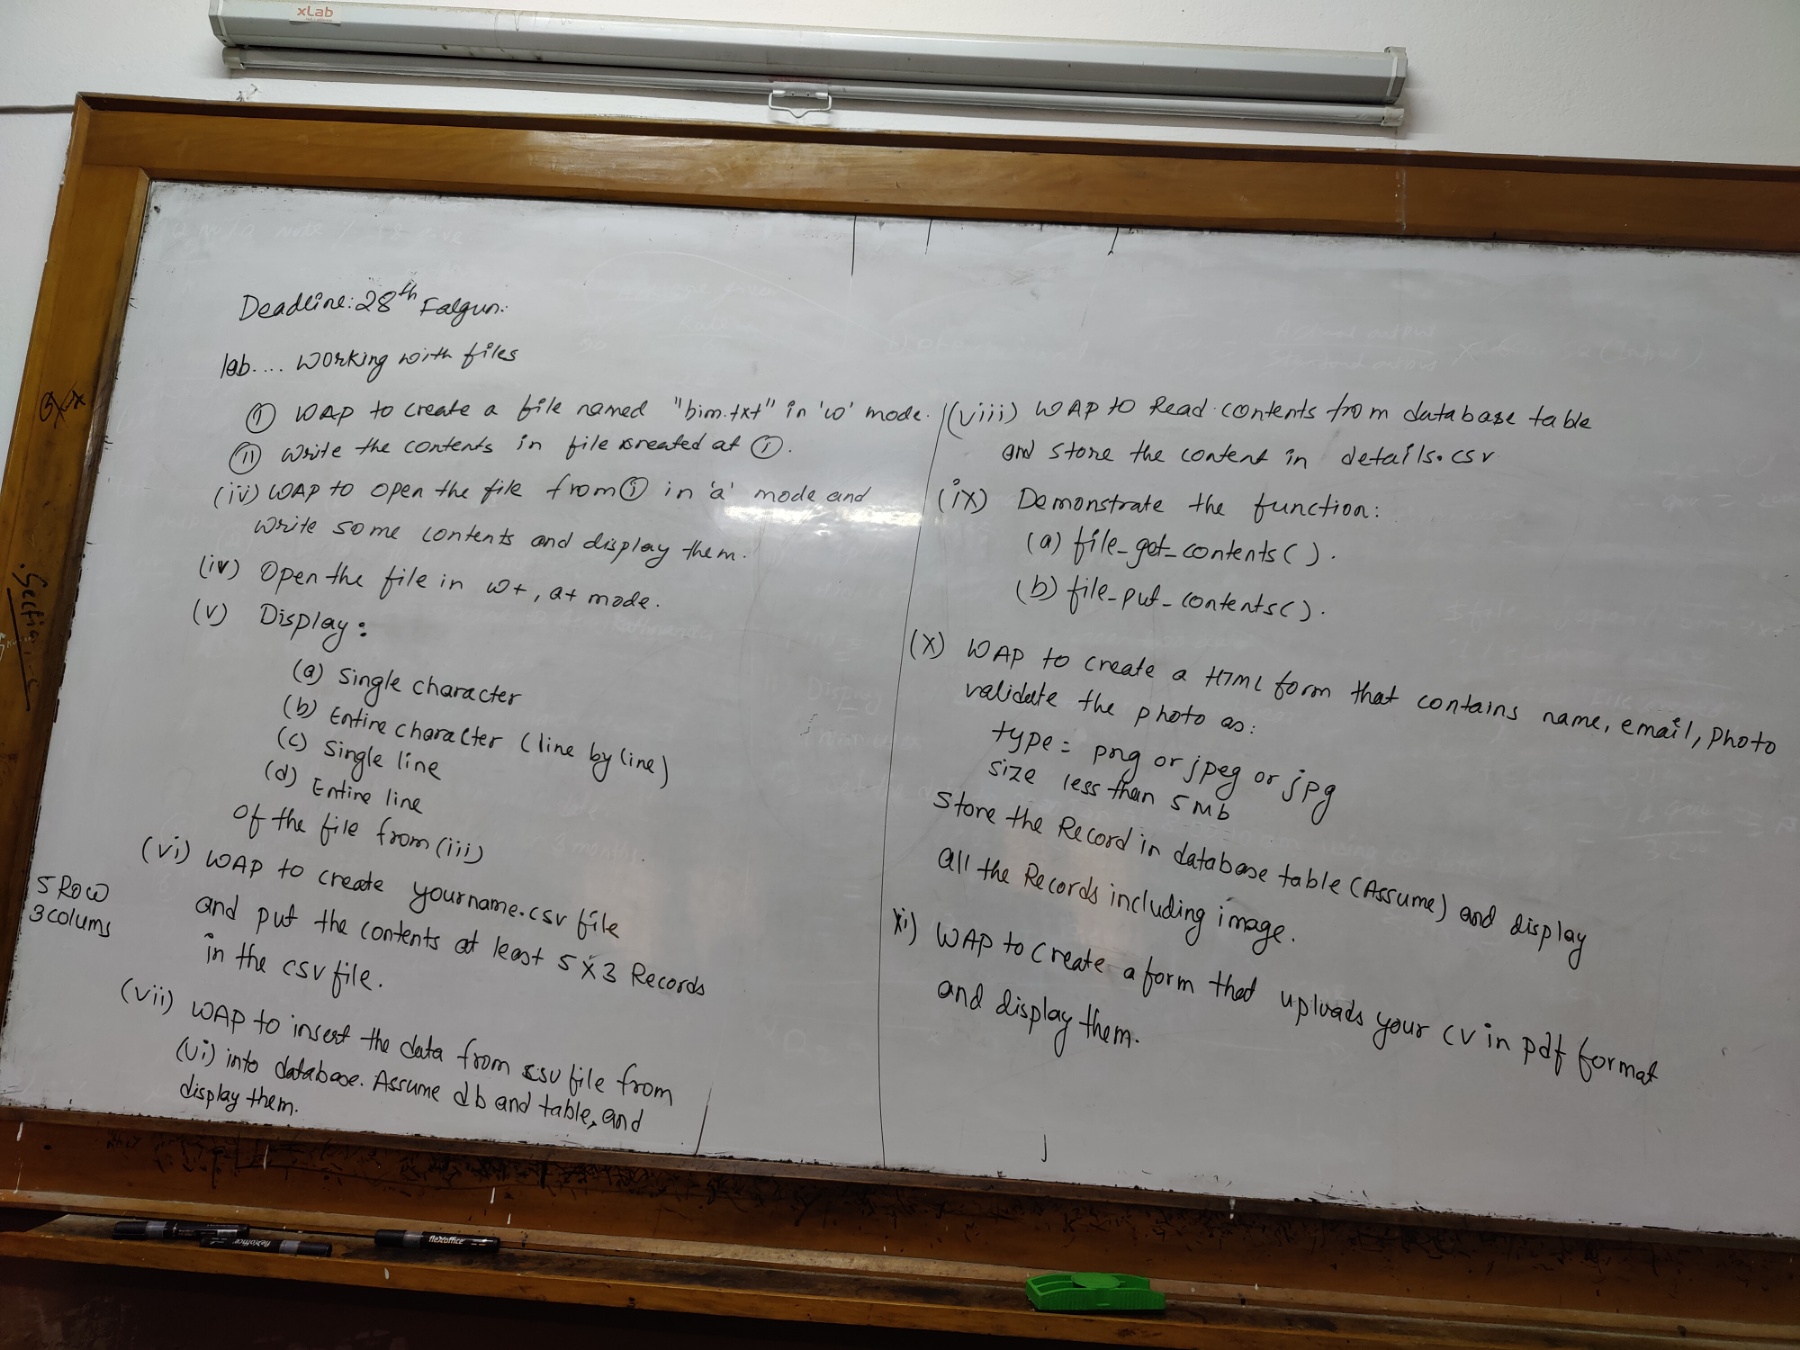 xLab
Deadline: 28th Falgun.
lab.... Working with files
(i) WAP to create a file named "bim.txt" in 'w' mode.
(ii) Write the contents in file created at (i).
(iv) WAP to open the file from (i) in 'a' mode and
write some contents and display them.
(iv) Open the file in w+, a+ mode.
(v) Display:
(a) Single character
(b) Entire character (line by line)
(c) Single line
(d) Entire line
of the file from (iii)
(vi) WAP to create yourname.csv file
and put the contents at least 5 x 3 Records
in the csv file.
5 Row
3 colums
(vii) WAP to insert the data from csv file from
(vi) into database. Assume db and table, and
display them.
(viii) WAP to Read contents from database table
and store the content in details.csv
(ix) Demonstrate the function:
(a) file_get_contents().
(b) file_put_contents().
(x) WAP to create a HTML form that contains name, email, photo
validate the photo as:
type = png or jpeg or jpg
size less than 5 mb
Store the Record in database table (Assume) and display
all the Records including image.
xi) WAP to create a form that uploads your cv in pdf format
and display them.
flexoffice
flexoffice